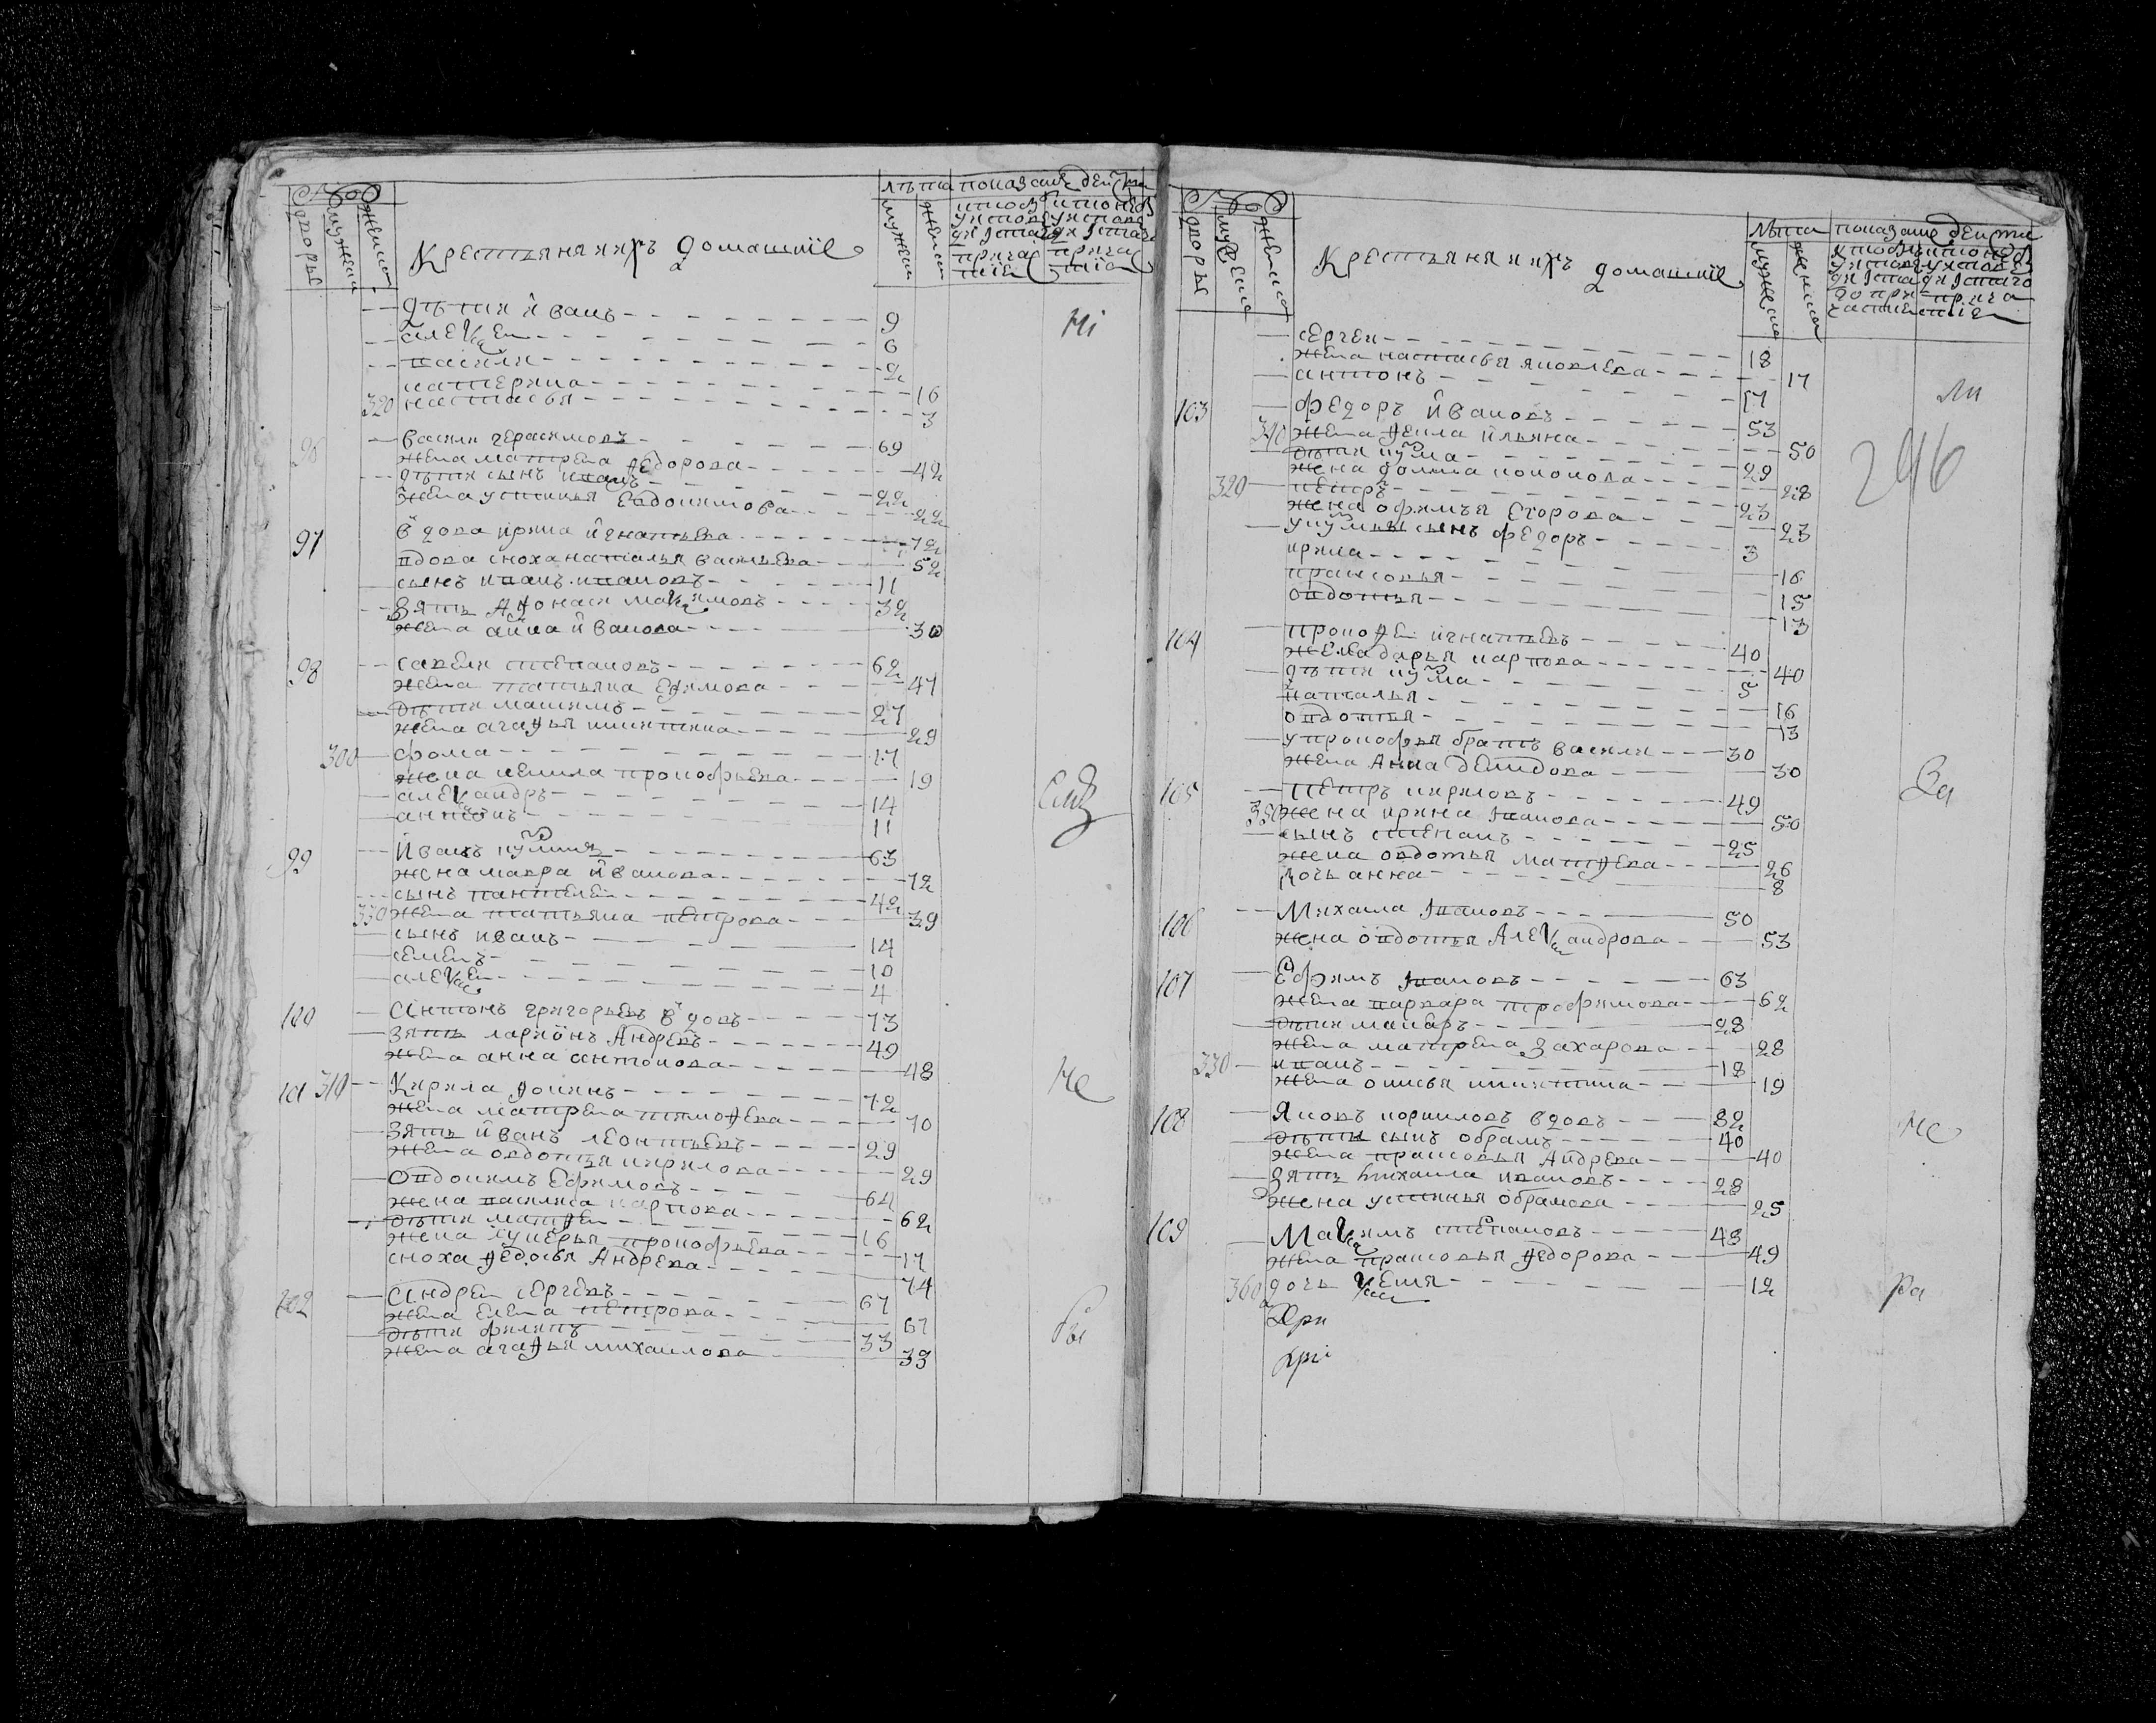 Число
дворы мужеска женска
Крестьяня и ихъ домашние
лѣта
мужеска женска
показание дейстъ
дѣти иванъ 9
алексеи 6
василеи 2
катерина 16
320 настасья 3
96 василеи герасимовъ 69
жена матрена федорова 42
дѣти сынъ иванъ 22
жена устинья евдокимова 22
97 вдова ирина игнатьева 72
вдова сноха наталья васильева 52
сынъ иванъ ивановъ 11
зять афонасеи максимовъ 32
жена анна иванова 30
98 савелеи степановъ 62
жена татьяна ефимова 47
дѣти максимъ 27
жена агафья никитина 29
300 фома 17
жена ненила прокофьева 19
александръ 14
антонъ 11
99 иванъ кузминъ 63
жена мавра иванова 72
сынъ пантелеи 42
330 жена татьяна петрова 39
сынъ иванъ 14
семенъ 10
алексеи 4
100 антонъ григорьевъ вдовъ 73
зять ларионъ андреевъ 49
жена анна антонова 48
101 310 кирила фокинъ 72
жена матрена тимофеева 70
зять иванъ леонтьевъ 29
жена овдотья кирилова 29
овдокимъ ефимовъ 64
жена василиса карпова 62
дѣти матфеи 16
жена лукерья прокофьева 17
сноха федосья андреева 74
102 андреи сергеевъ 67
жена елена петрова 67
дѣти филипъ 33
жена агафья михаилова 33
Число
дворы мужеска женска
Крестьяня и ихъ домашние
лѣта
мужеска женска
показание дейстъ
246
сергеи 18
жена настасья яковлева 17
антонъ 17
103 федоръ ивановъ 53
340 жена фекла ильина 50
дѣти кузма 29
жена домна кононова 28
320 петръ 23
жена офимья егорова 23
у кузмы сынъ федоръ 3
ирина 16
прасковья 15
овдотья 13
104 прокофеи игнатьевъ 40
жена дарья карпова 40
дѣти кузма 5
наталья 16
овдотья 13
у прокофья братъ василеи 30
жена анна демидова 30
105 петръ кириловъ 49
350 жена ирина иванова 50
сынъ степанъ 25
жена овдотья матфеева 26
дочь анна 8
106 михаила ивановъ 50
жена овдотья александрова 53
107 ефимъ ивановъ 63
жена варвара трофимова 62
дѣти макаръ 28
жена матрена захарова 28
330 иванъ 18
жена онисья никитина 19
108 яковъ корниловъ вдовъ 82
дѣти сынъ обрамъ 40
жена прасковья андреева 40
зять михаила ивановъ 28
жена устинья обрамова 25
109 максимъ степановъ 48
жена прасковья федорова 49
360 дочь ксения 12